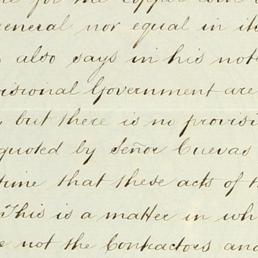 for the copper coin
general nor equal in it
also says in his not
visional Government are
but there is no provisi
quoted by Señor Cuevas
time that these acts of t
This is a matter in wh
not the Contractors and